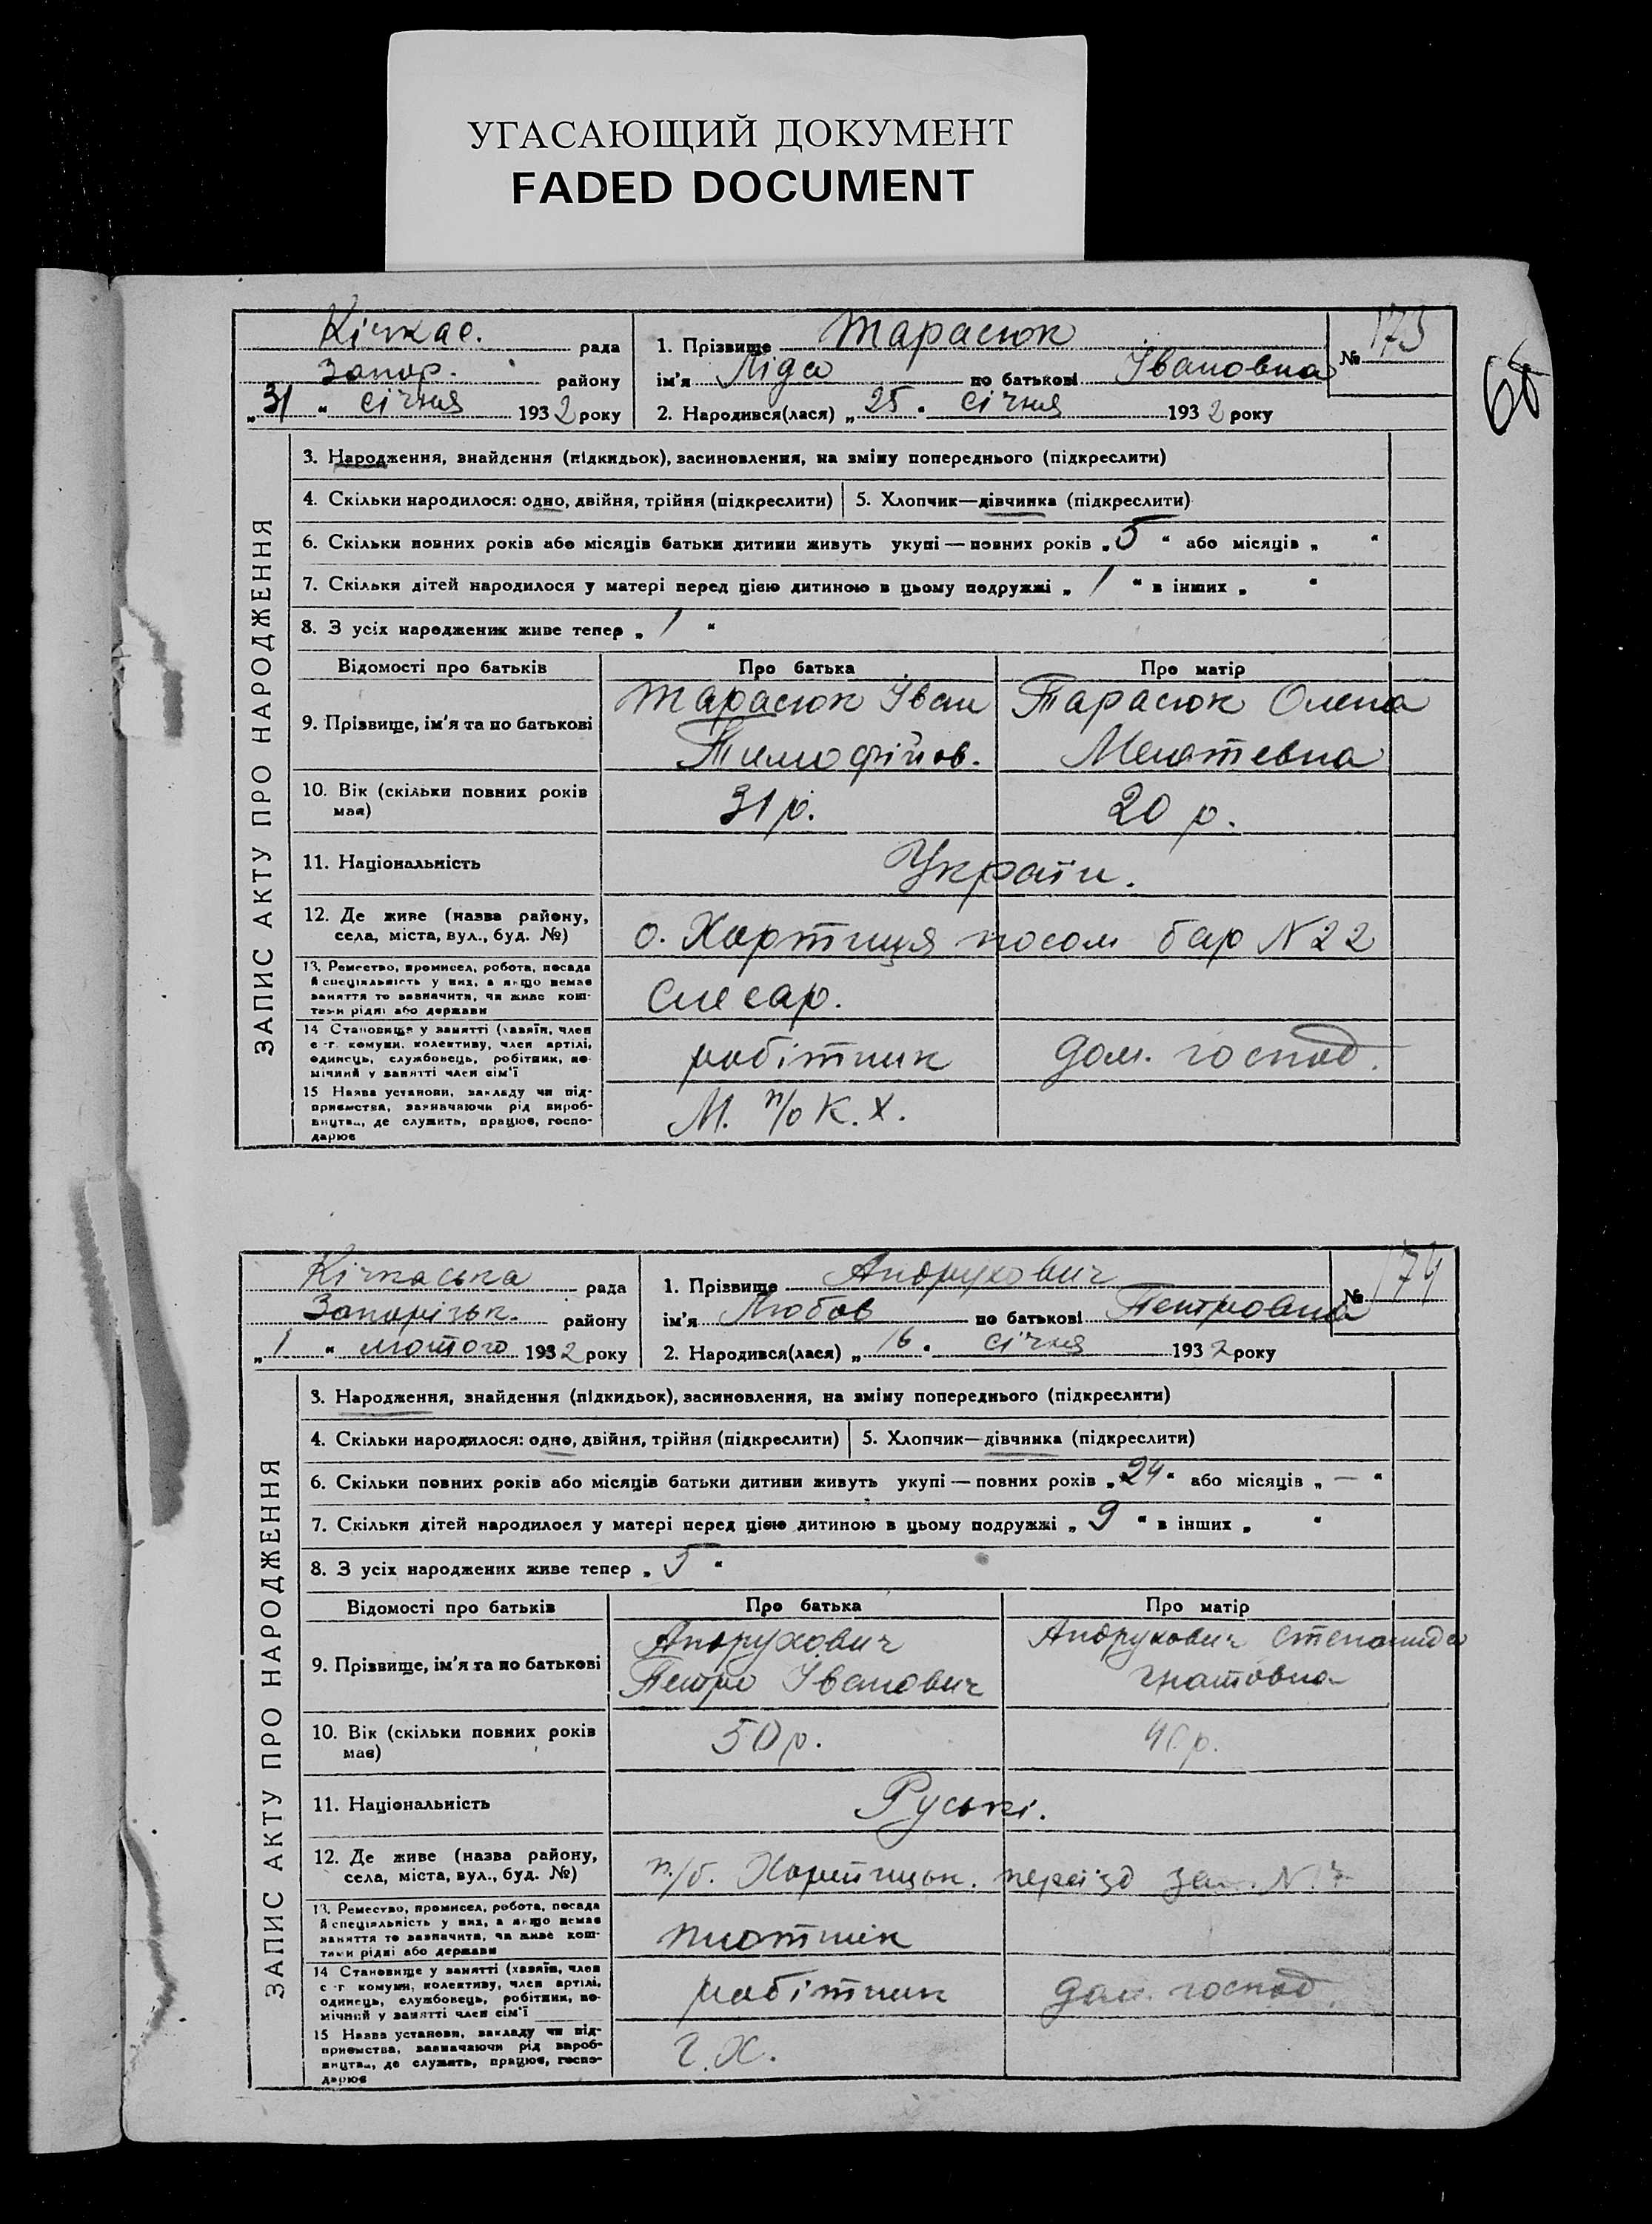 УГАСАЮЩИЙ ДОКУМЕНТ
FADED DOCUMENT
66
Кічкас. рада
Запор. району
„31 “ січня 1932 року
1. Прізвище Тарасюк
ім'я Ліда по батькові Івановна
2. Народився(лася) „ 25 “ січня 1932 року
№ 173
ЗАПИС АКТУ ПРО НАРОДЖЕННЯ
3. Народження, знайдення (підкидьок), засиновлення, на зміну попереднього (підкреслити)
4. Скільки народилося: одно, двійня, трійня (підкреслити) 5. Хлопчик—дівчинка (підкреслити)
6. Скільки повних років або місяців батьки дитини живуть укупі — повних років „ 5 “ або місяців „ “
7. Скільки дітей народилося у матері перед цією дитиною в цьому подружжі „ 1 “ в інших „ “
8. З усіх народжених живе тепер „ 1 “
Відомості про батьків Про батька Про матір
9. Прізвище, ім'я та по батькові
Тарасюк Іван
Тимофійов.
Тарасюк Олена
10. Вік (скільки повних років має) 31 р. 20 р.
11. Національність Україн.
12. Де живе (назва району, села, міста, вул., буд. №)
о. Хортиця посол бар N 22
13. Ремество, промисел, робота, посада й спеціяльність у них, а якщо немає заняття то зазначити, чи живе коштами рідні або держави
слесар.
14 Становище у занятті (хазяїн, член с.-г. комуни, колективу, член артілі, одинець, службовець, робітник, помічний у занятті член сім'ї
робітник дом. господ.
15 Назва установи, закладу чи підприємства, зазначаючи рід виробництва, де служить, працює, господарює
М. п/о К. Х.
Кічкаська рада
Запорізьк. району
„ 1 “ лютого 1932 року
1. Прізвище Андрухович
ім'я Любов по батькові Петровна
2. Народився(лася) „ 16 “ січня 1932 року
№ 174
ЗАПИС АКТУ ПРО НАРОДЖЕННЯ
3. Народження, знайдення (підкидьок), засиновлення, на зміну попереднього (підкреслити)
4. Скільки народилося: одно, двійня, трійня (підкреслити) 5. Хлопчик—дівчинка (підкреслити)
6. Скільки повних років або місяців батьки дитини живуть укупі — повних років „ 24 “ або місяців „ — “
7. Скільки дітей народилося у матері перед цією дитиною в цьому подружжі „ 9 “ в інших „ “
8. З усіх народжених живе тепер „ 5 “
Відомості про батьків Про батька Про матір
9. Прізвище, ім'я та по батькові
Андрухович
Петро Іванович
Андрухович Степанида
Гнатовна
10. Вік (скільки повних років має) 50 р. 40 р.
11. Національність Руські.
12. Де живе (назва району, села, міста, вул., буд. №)
п./б. Хортицьк. переїзд
13. Ремество, промисел, робота, посада й спеціяльність у них, а якщо немає заняття то зазначити, чи живе коштами рідні або держави
плотнік
14 Становище у занятті (хазяїн, член с.-г. комуни, колективу, член артілі, одинець, службовець, робітник, помічний у занятті член сім'ї
робітник дом. господ.
15 Назва установи, закладу чи підприємства, зазначаючи рід виробництва, де служить, працює, господарює
Г. Х.